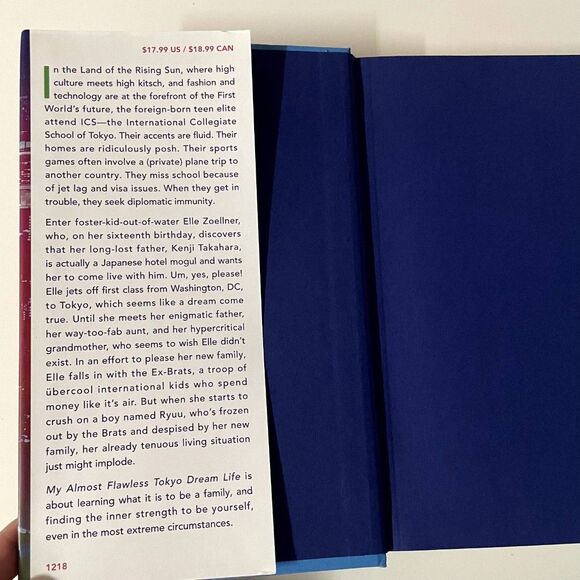 $17.99 US / $18.99 CAN
In the Land of the Rising Sun, where high
culture meets high kitsch, and fashion and
technology are at the forefront of the First
World's future, the foreign-born teen elite
attend ICS—the International Collegiate
School of Tokyo. Their accents are fluid. Their
homes are ridiculously posh. Their sports
games often involve a (private) plane trip to
another country. They miss school because
of jet lag and visa issues. When they get in
trouble, they seek diplomatic immunity.
Enter foster-kid-out-of-water Elle Zoellner,
who, on her sixteenth birthday, discovers
that her long-lost father, Kenji Takahara,
is actually a Japanese hotel mogul and wants
her to come live with him. Um, yes, please!
Elle jets off first class from Washington, DC,
to Tokyo, which seems like a dream come
true. Until she meets her enigmatic father,
her way-too-fab aunt, and her hypercritical
grandmother, who seems to wish Elle didn't
exist. In an effort to please her new family,
Elle falls in with the Ex-Brats, a troop of
übercool international kids who spend
money like it's air. But when she starts to
crush on a boy named Ryuu, who's frozen
out by the Brats and despised by her new
family, her already tenuous living situation
just might implode.
My Almost Flawless Tokyo Dream Life is
about learning what it is to be a family, and
finding the inner strength to be yourself,
even in the most extreme circumstances.
1218